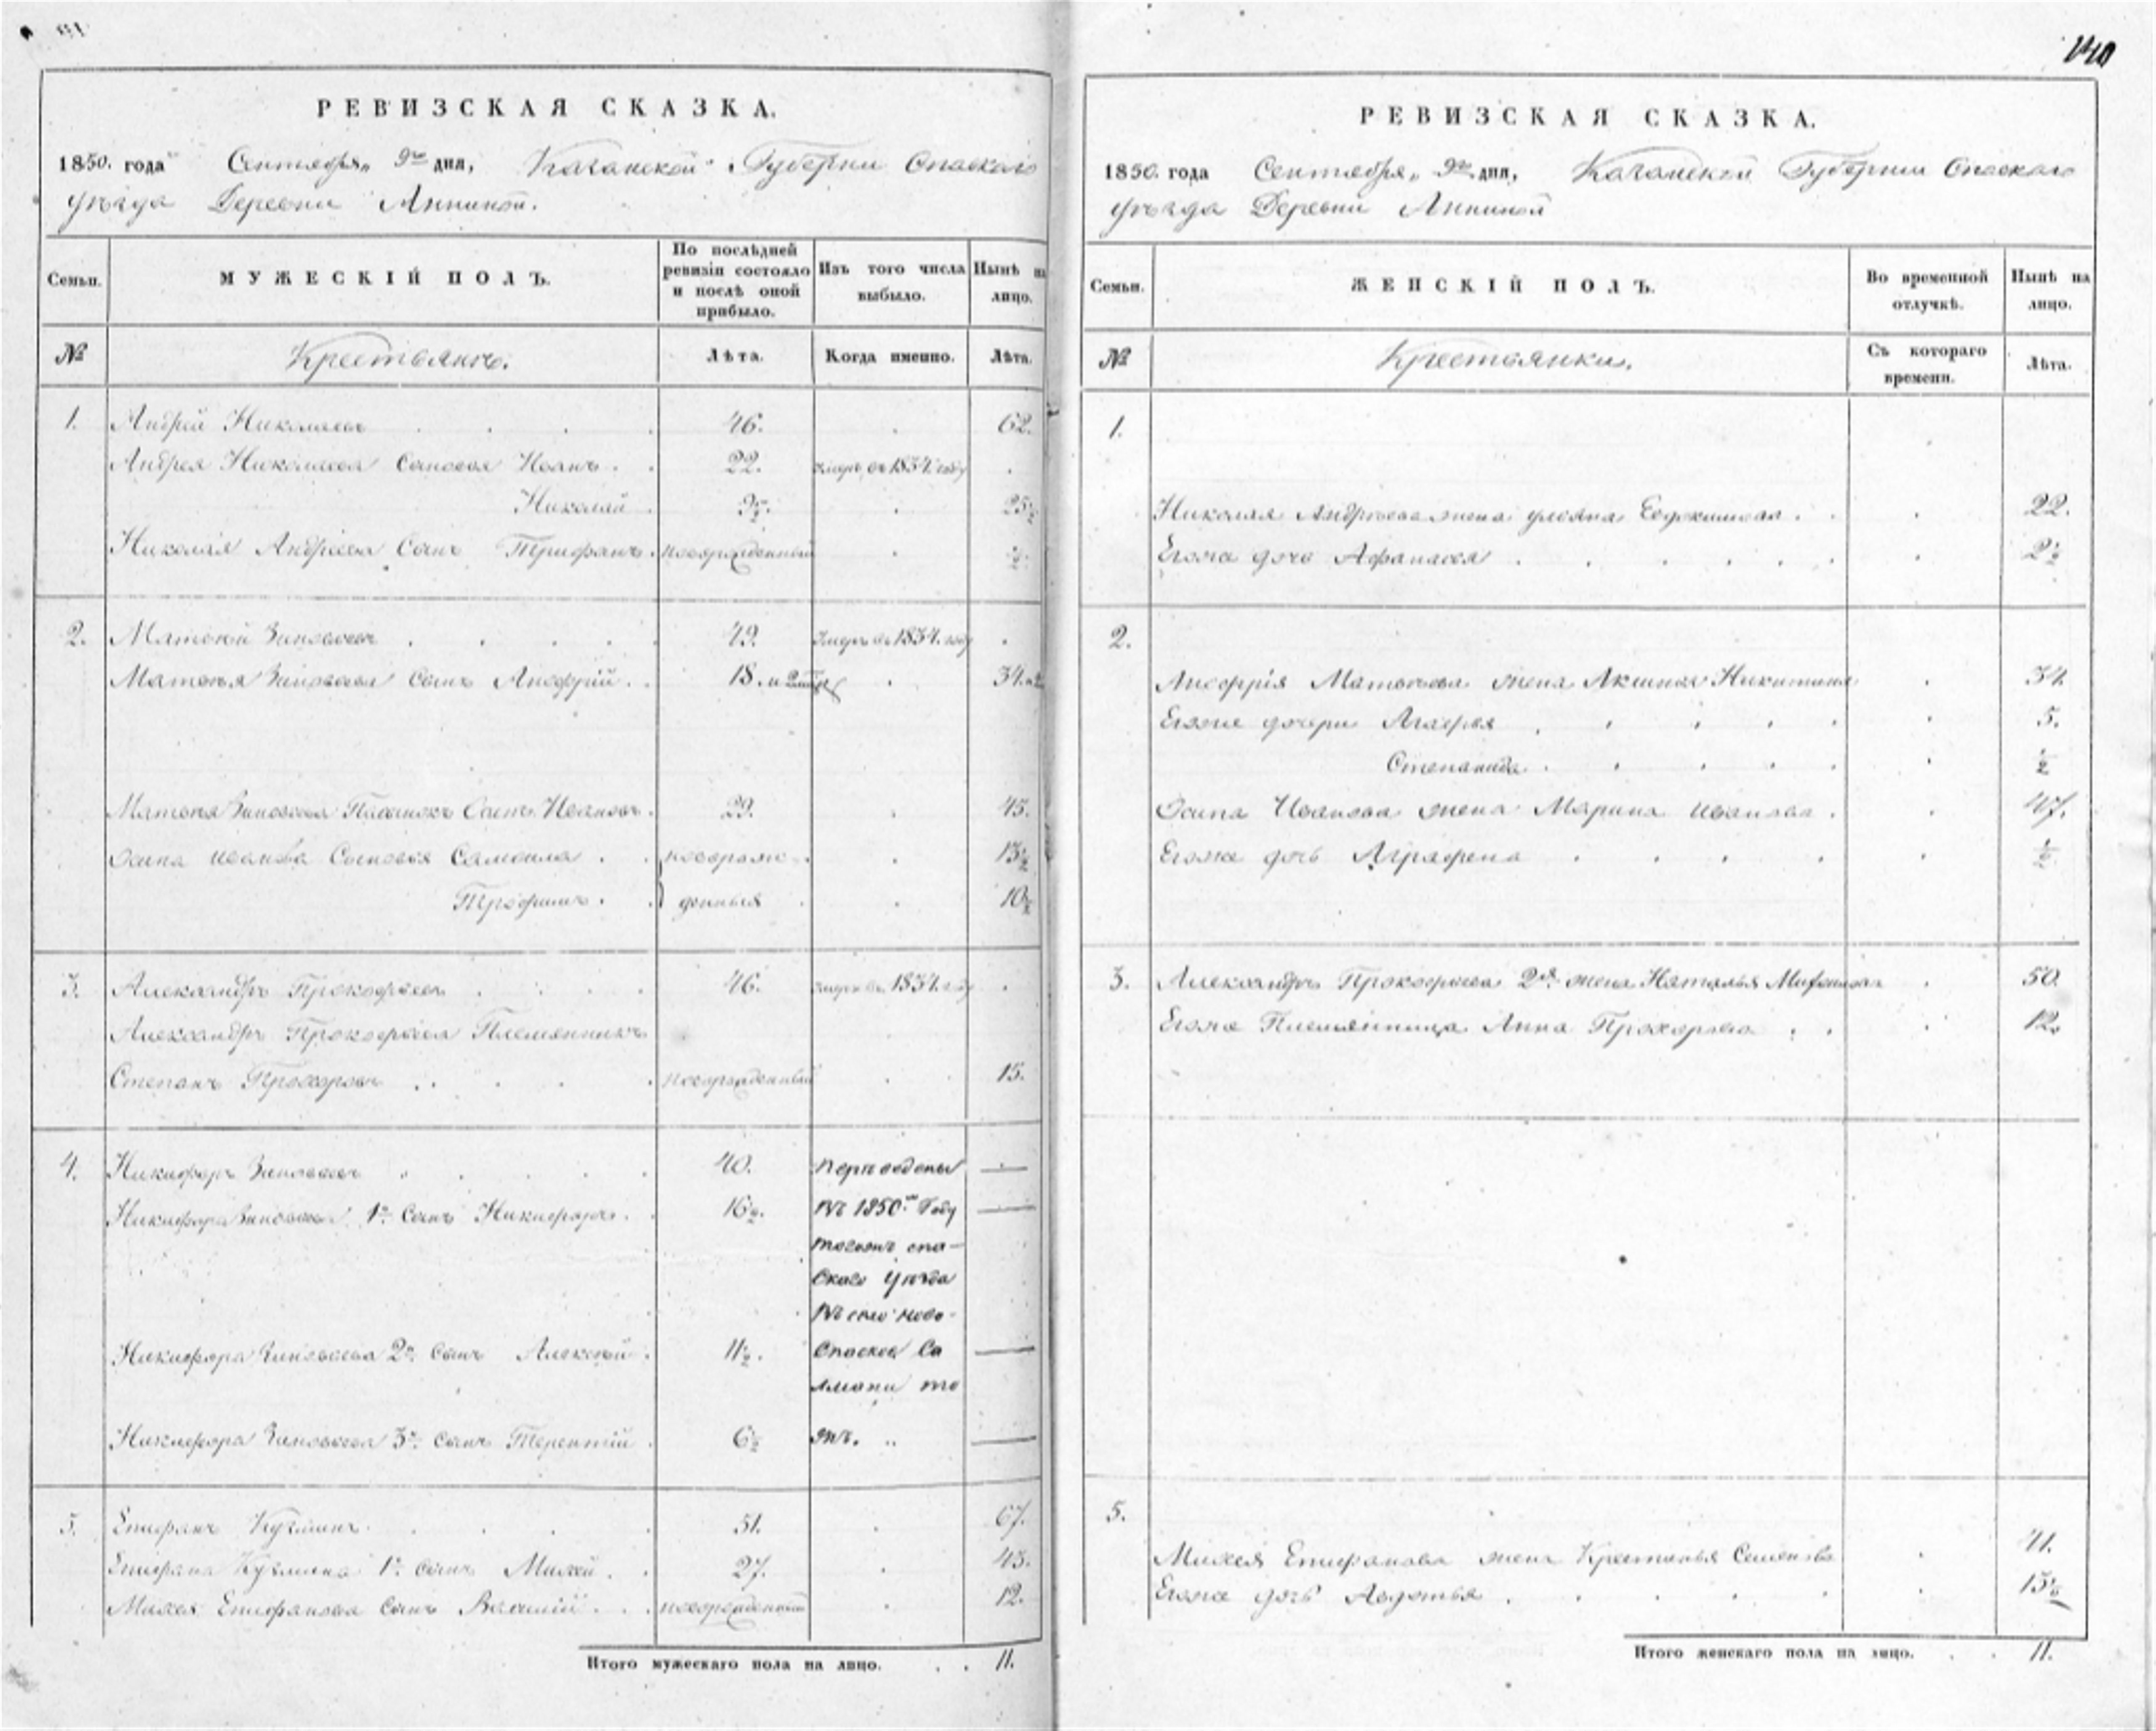 140
РЕВИЗСКАЯ СКАЗКА.
1850. года Сентября 9го дня, Казанской Губернии Спаскаго
уѣзда Деревни Анниной.
Семьи.
МУЖЕСКІЙ ПОЛЪ.
По послѣдней ревизіи состояло и послѣ оной прибыло.
Изъ того числа выбыло.
Нынѣ на лицо.
№
Крестьянъ.
Лѣта.
Когда именно.
Лѣта.
1. Андрей Николаевъ 46. 62.
Андрея Николаева Сыновья Иванъ. 22. умеръ въ 1834. году
Николай 9½. 25½
Николая Андреева Сынъ Трифанъ. новорожденный ½.
2. Матвей Зиновьевъ 49. Умеръ въ 1834. году
Матвея Зиновьева Сынъ Анофрій. 18. 34.
Матвея Зиновьева Пасынокъ Осипъ Ивановъ. 29. 45.
Осипа Иванова Сыновья Самоила новорож- 13½
Трофимъ. денныя 10½
3. Александръ Прокофьевъ 46. умеръ въ 1834. году
Александръ Прокофьева Племянникъ
Степанъ Прохоровъ новорожденный 15.
4. Никифоръ Зиновьевъ 40. Переведены
Никифора Зиновьева 1й Сынъ Никифоръ. 16½. въ 1850м Году
тогожъ спа-
скаго уѣзда
въ село ново-
Никифора Зиновьева 2й Сынъ Алексѣй. 11½. Спаское Са
лмони то
Никифора Зиновьева 3й Сынъ Терентій 6½ жъ.
5. Епифанъ Кузминъ. 51. 67.
Епифана Кузмина 1й сынъ Михей. 27. 43.
Михея Епифанова сынъ Василій. новорожденный 12.
Итого мужескаго пола на лицо. 11.
РЕВИЗСКАЯ СКАЗКА.
1850. года Сентября 9го дня, Казанской Губернии Спаскаго
уѣзда Деревни Анниной
Семьи.
ЖЕНСКІЙ ПОЛЪ.
Во временной отлучкѣ.
Нынѣ на лицо.
№
Крестьянки.
Съ котораго времени.
Лѣта.
1.
Николая Андреева жена Улеяна Евдокимова. 22.
Егоже дочь Афанасея 2½
2.
Анофрія Матвеева жена Аксинья Никитина 34
Егоже дочери Агафья 5.
Степанида. ½
Осипа Иванова жена Марина Иванова. 47.
Егоже дочь Аграфена ½
3. Александръ Прокофьева 2я жена Наталья 50.
Егоже Племянница Анна Прохорова 12.
5.
Михея Епифанова жена Крестинья Семенова 41.
Егоже дочь Авдотья 15½
Итого женскаго пола на лицо. 11.